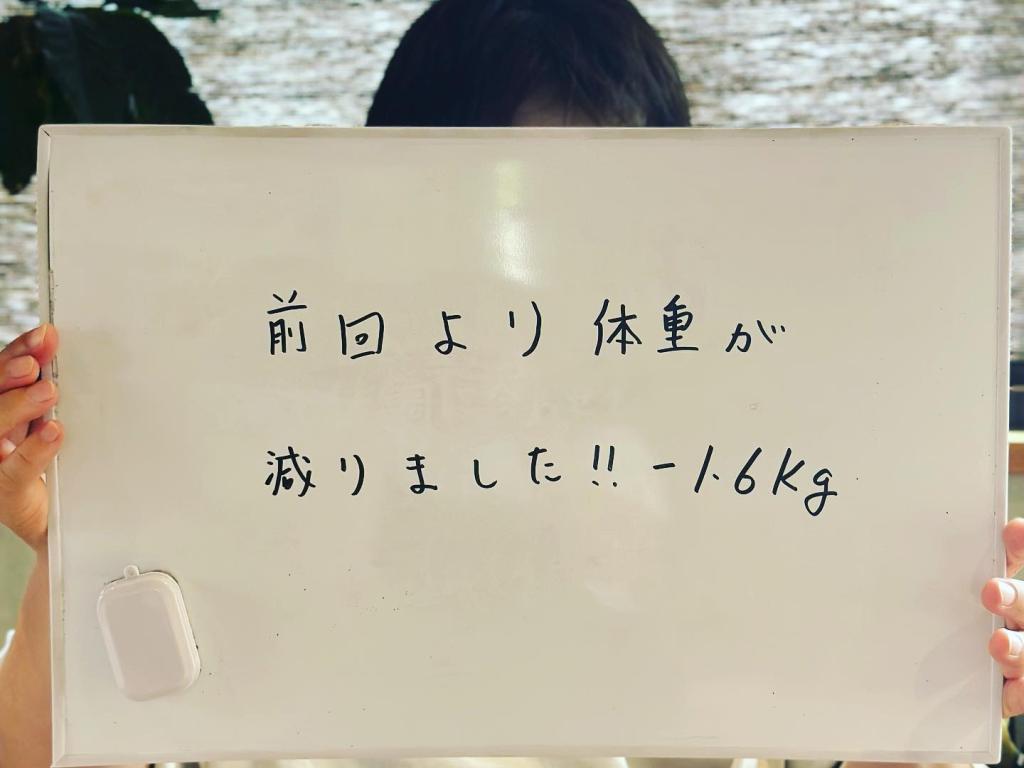 前回より体重が
減りました!! -1.6Kg